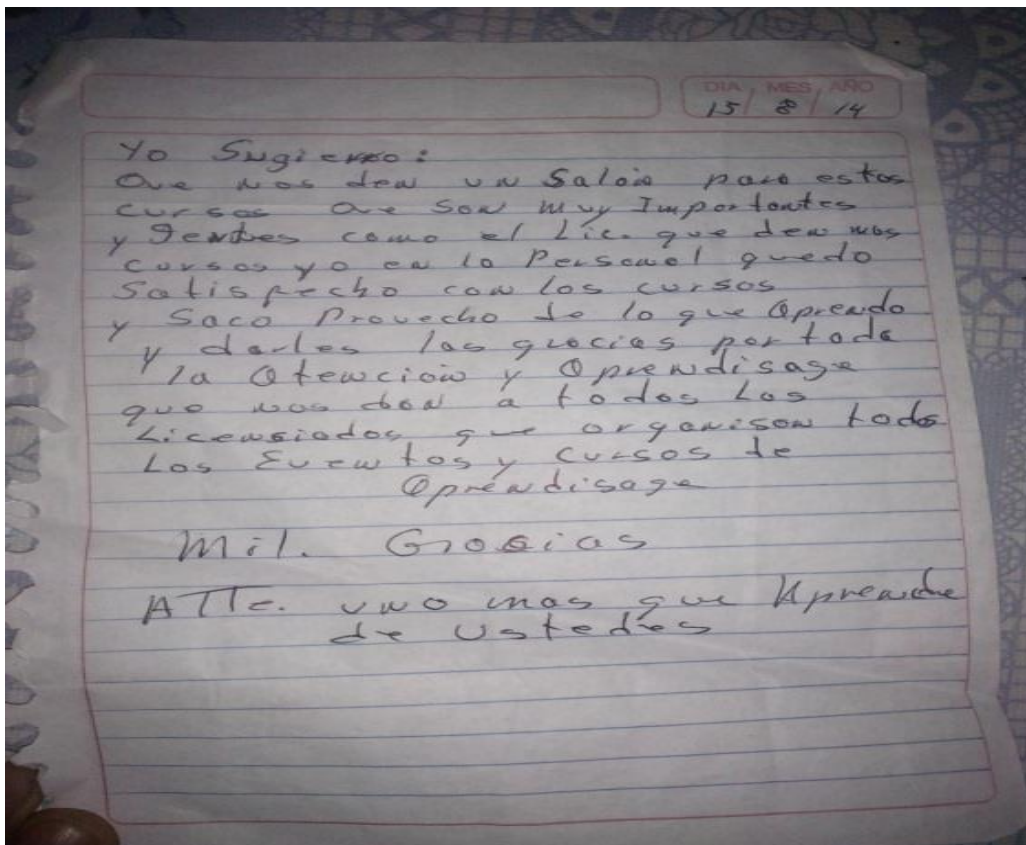 DIA / MES / AÑO
15/ 8 / 14
Yo Sugierro:
Que nos den un Salòn para estos
cursos que son muy Importantes
y como el Lic. que den nos
cursos yo en lo Personal quedo
Satisfecho con los cursos
y Saco Provecho de lo que Aprendo
y darles las gracias por toda
la Atenciòn y Aprendisage
que nos dan a todos Los
Licensiados que organison todos
Los Eventos y cursos de
Aprendisage
Mil. Gracias
ATTe. uno mas que Aprende
de Ustedes